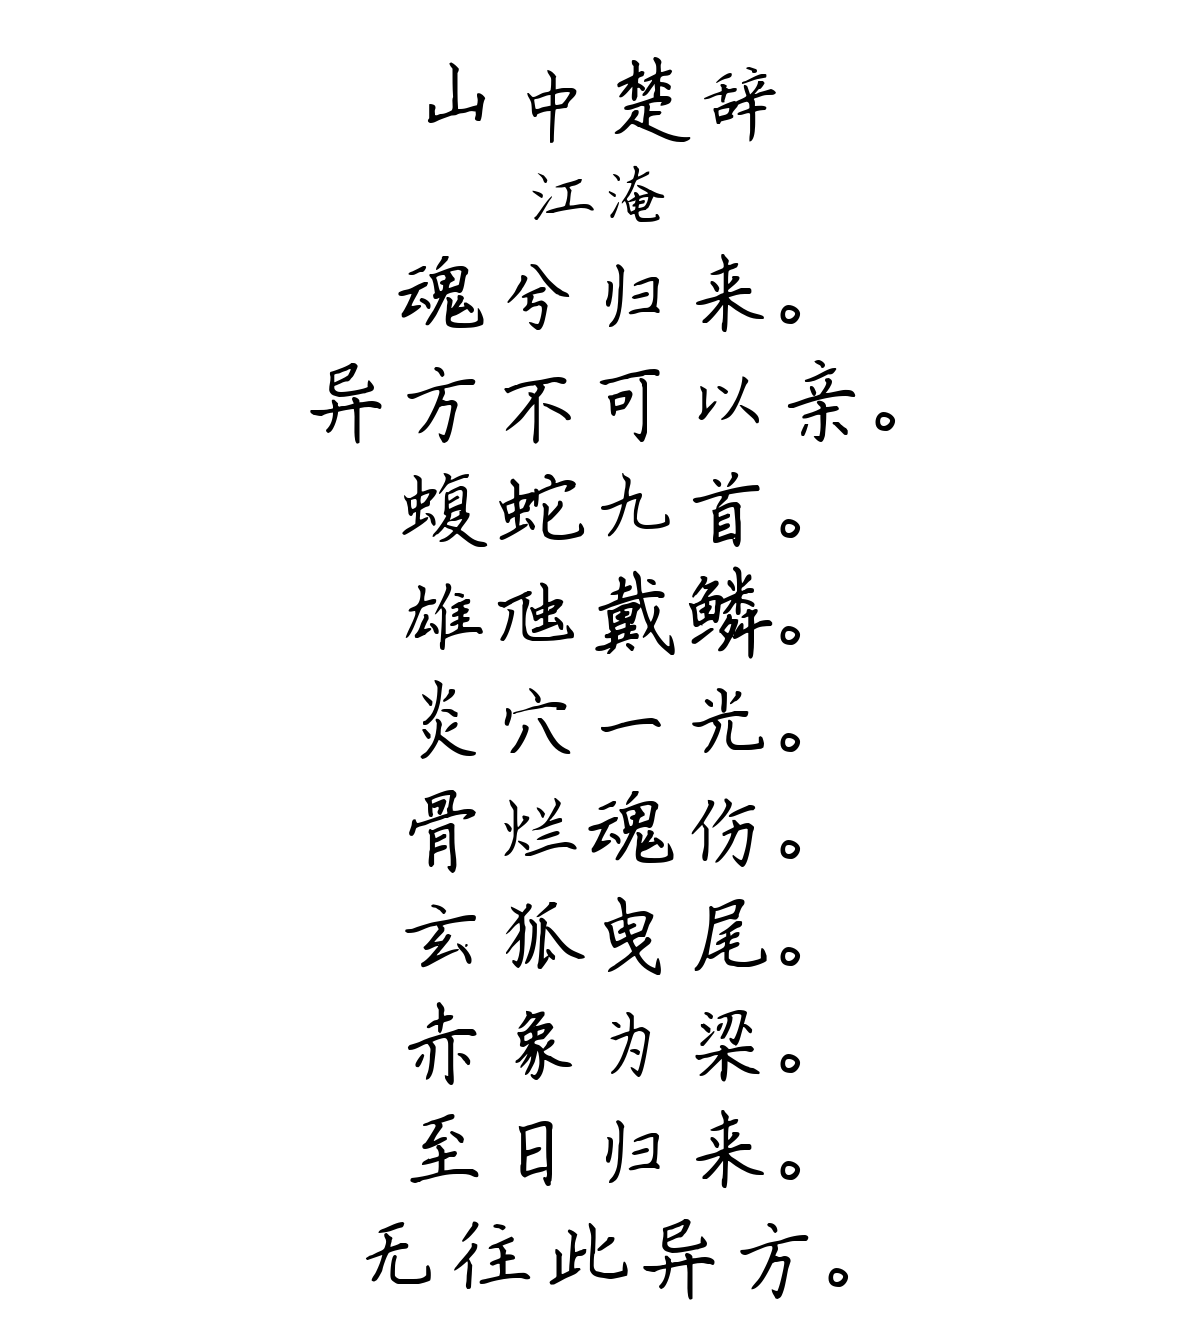 山中楚辞
江淹
魂兮归来。
异方不可以亲。
蝮蛇九首。
雄虺戴鳞。
炎穴一光。
骨烂魂伤。
玄狐曳尾。
赤象为梁。
至日归来。
无往此异方。